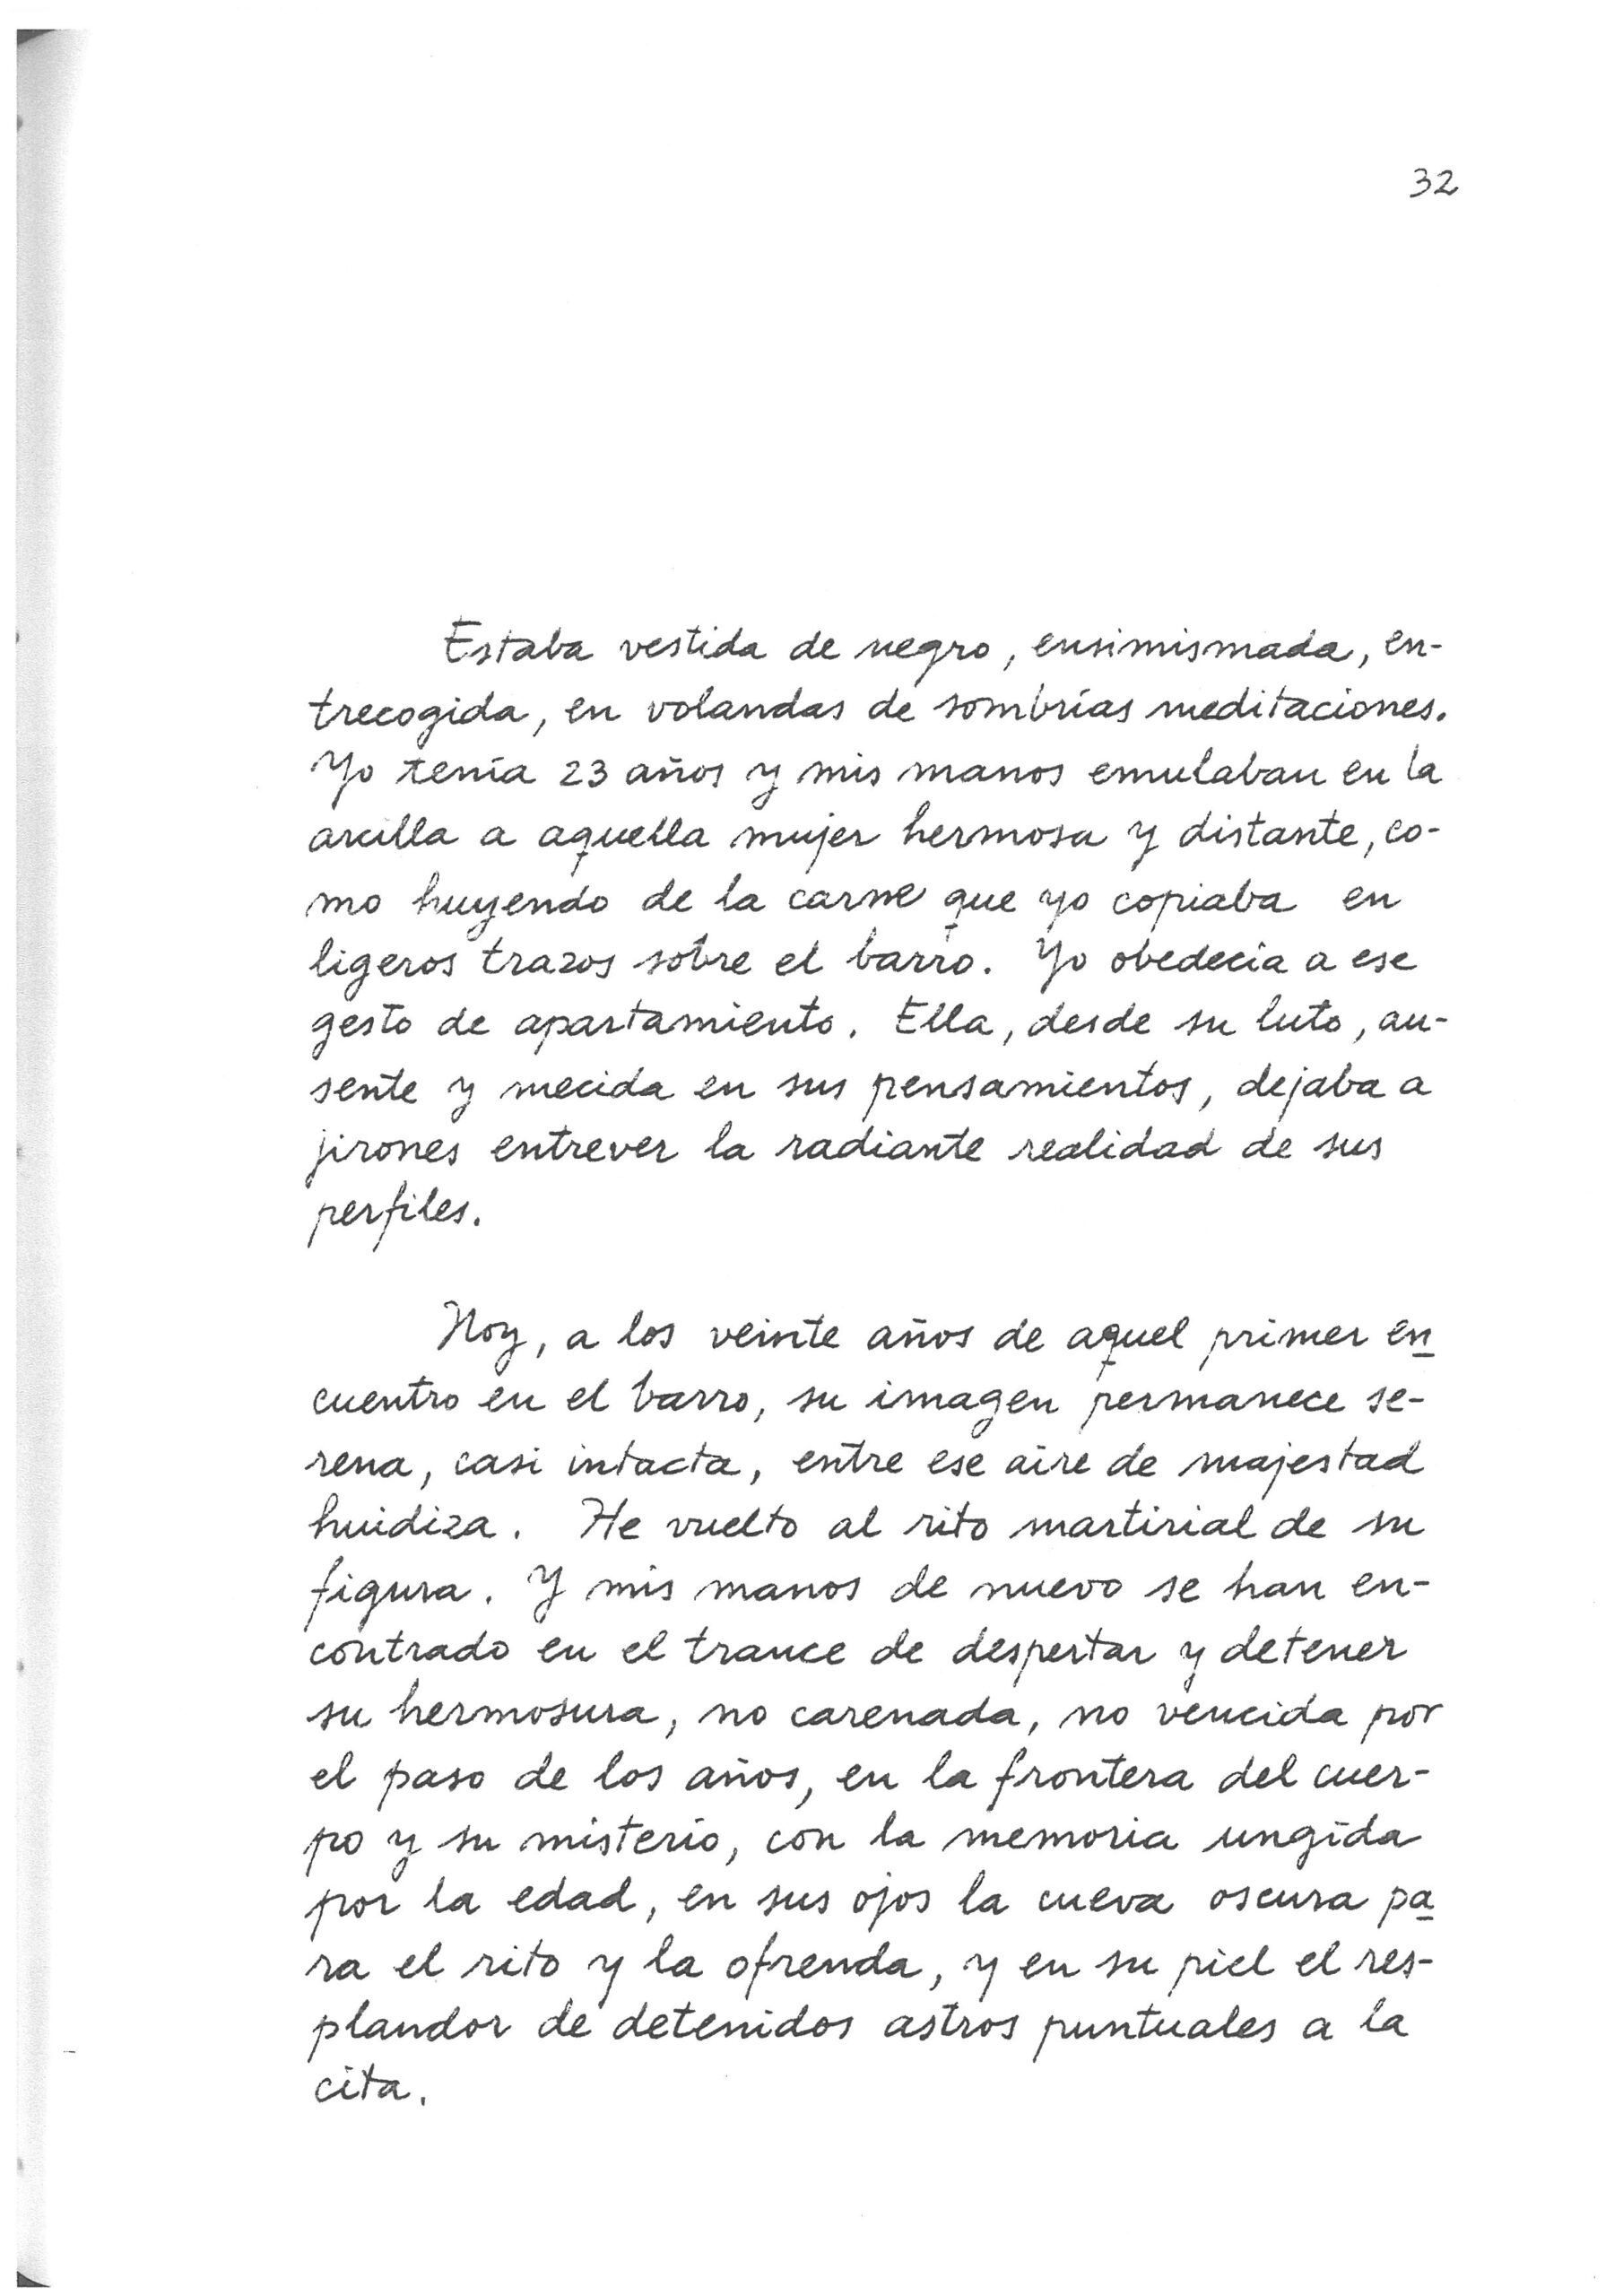 32
Estaba vestida de negro, ensimismada, en-
trecogida, en volandas de sombrías meditaciones.
Yo tenía 23 años y mis manos emulaban en la
arcilla a aquella mujer hermosa y distante, co-
mo huyendo de la carne que yo copiaba en
ligeros trazos sobre el barro. Yo obedecía a ese
gesto de apartamiento. Ella, desde su luto, au-
sente y mecida en sus pensamientos, dejaba a
jirones entrever la radiante realidad de sus
perfiles.
Hoy, a los veinte años de aquel primer en
cuentro en el barro, su imagen permanece se-
rena, casi intacta, entre ese aire de majestad
huidiza. He vuelto al rito martirial de su
figura. Y mis manos de nuevo se han en-
contrado en el trance de despertar y detener
su hermosura, no carenada, no vencida por
el paso de los años, en la frontera del cuer-
po y su misterio, con la memoria ungida
por la edad, en sus ojos la cueva oscura pa
ra el rito y la ofrenda, y en su piel el res-
plandor de detenidos astros puntuales a la
cita.